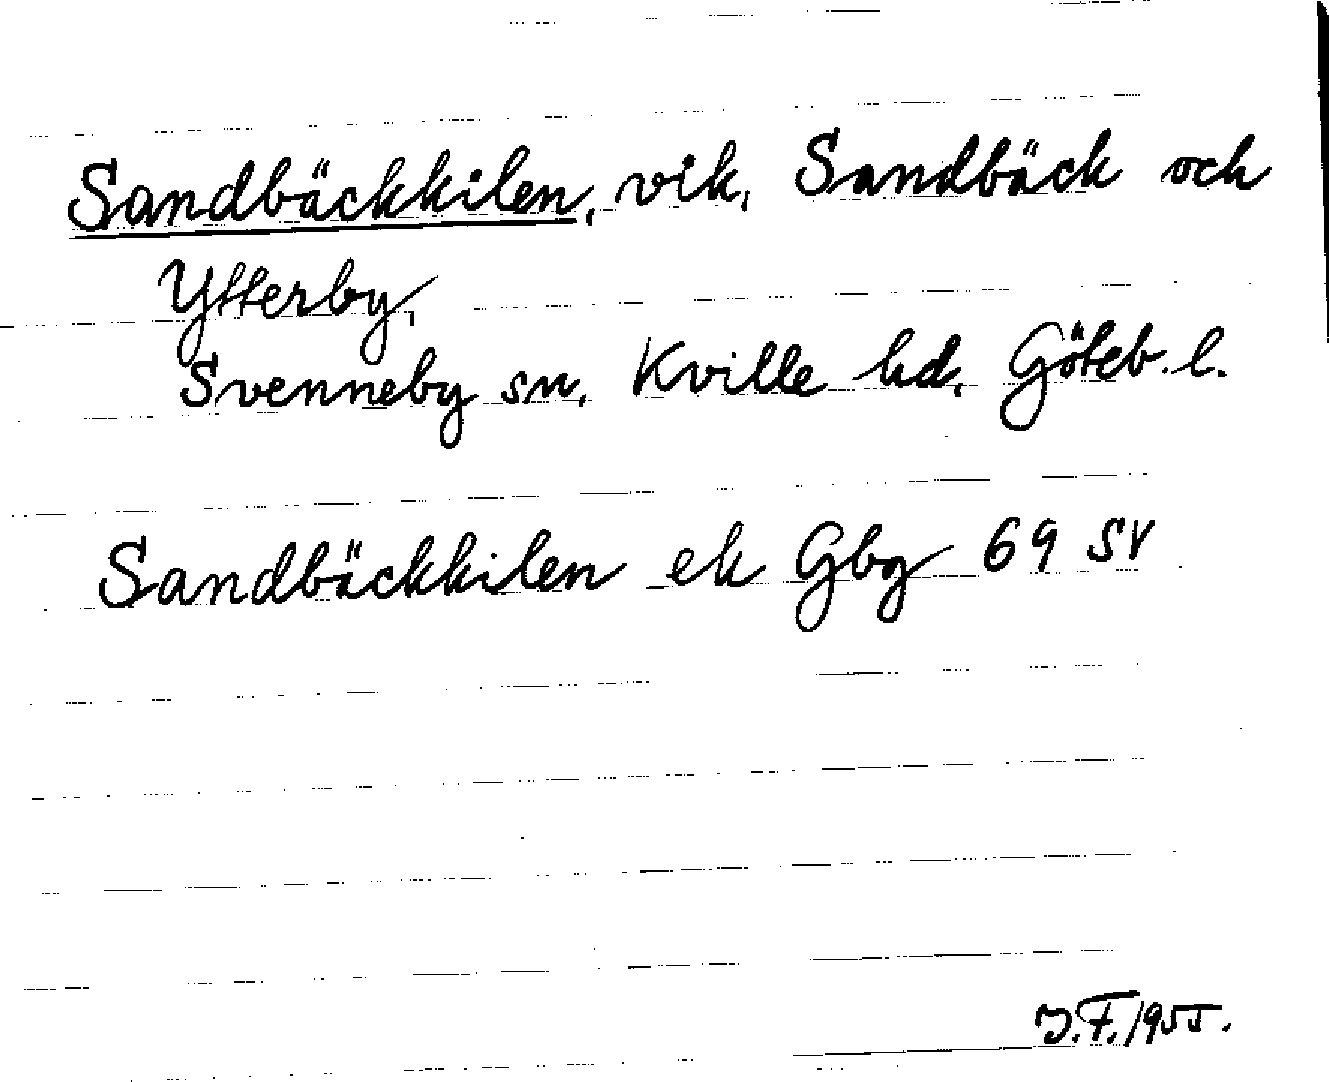 Sandbäckkilen, vik, Sandbäck och
Ytterby,
Svenneby sn, Kville hd, Göteb. l.
Sandbäckkilen ek Gbg 69 SV
J.F. 1955.